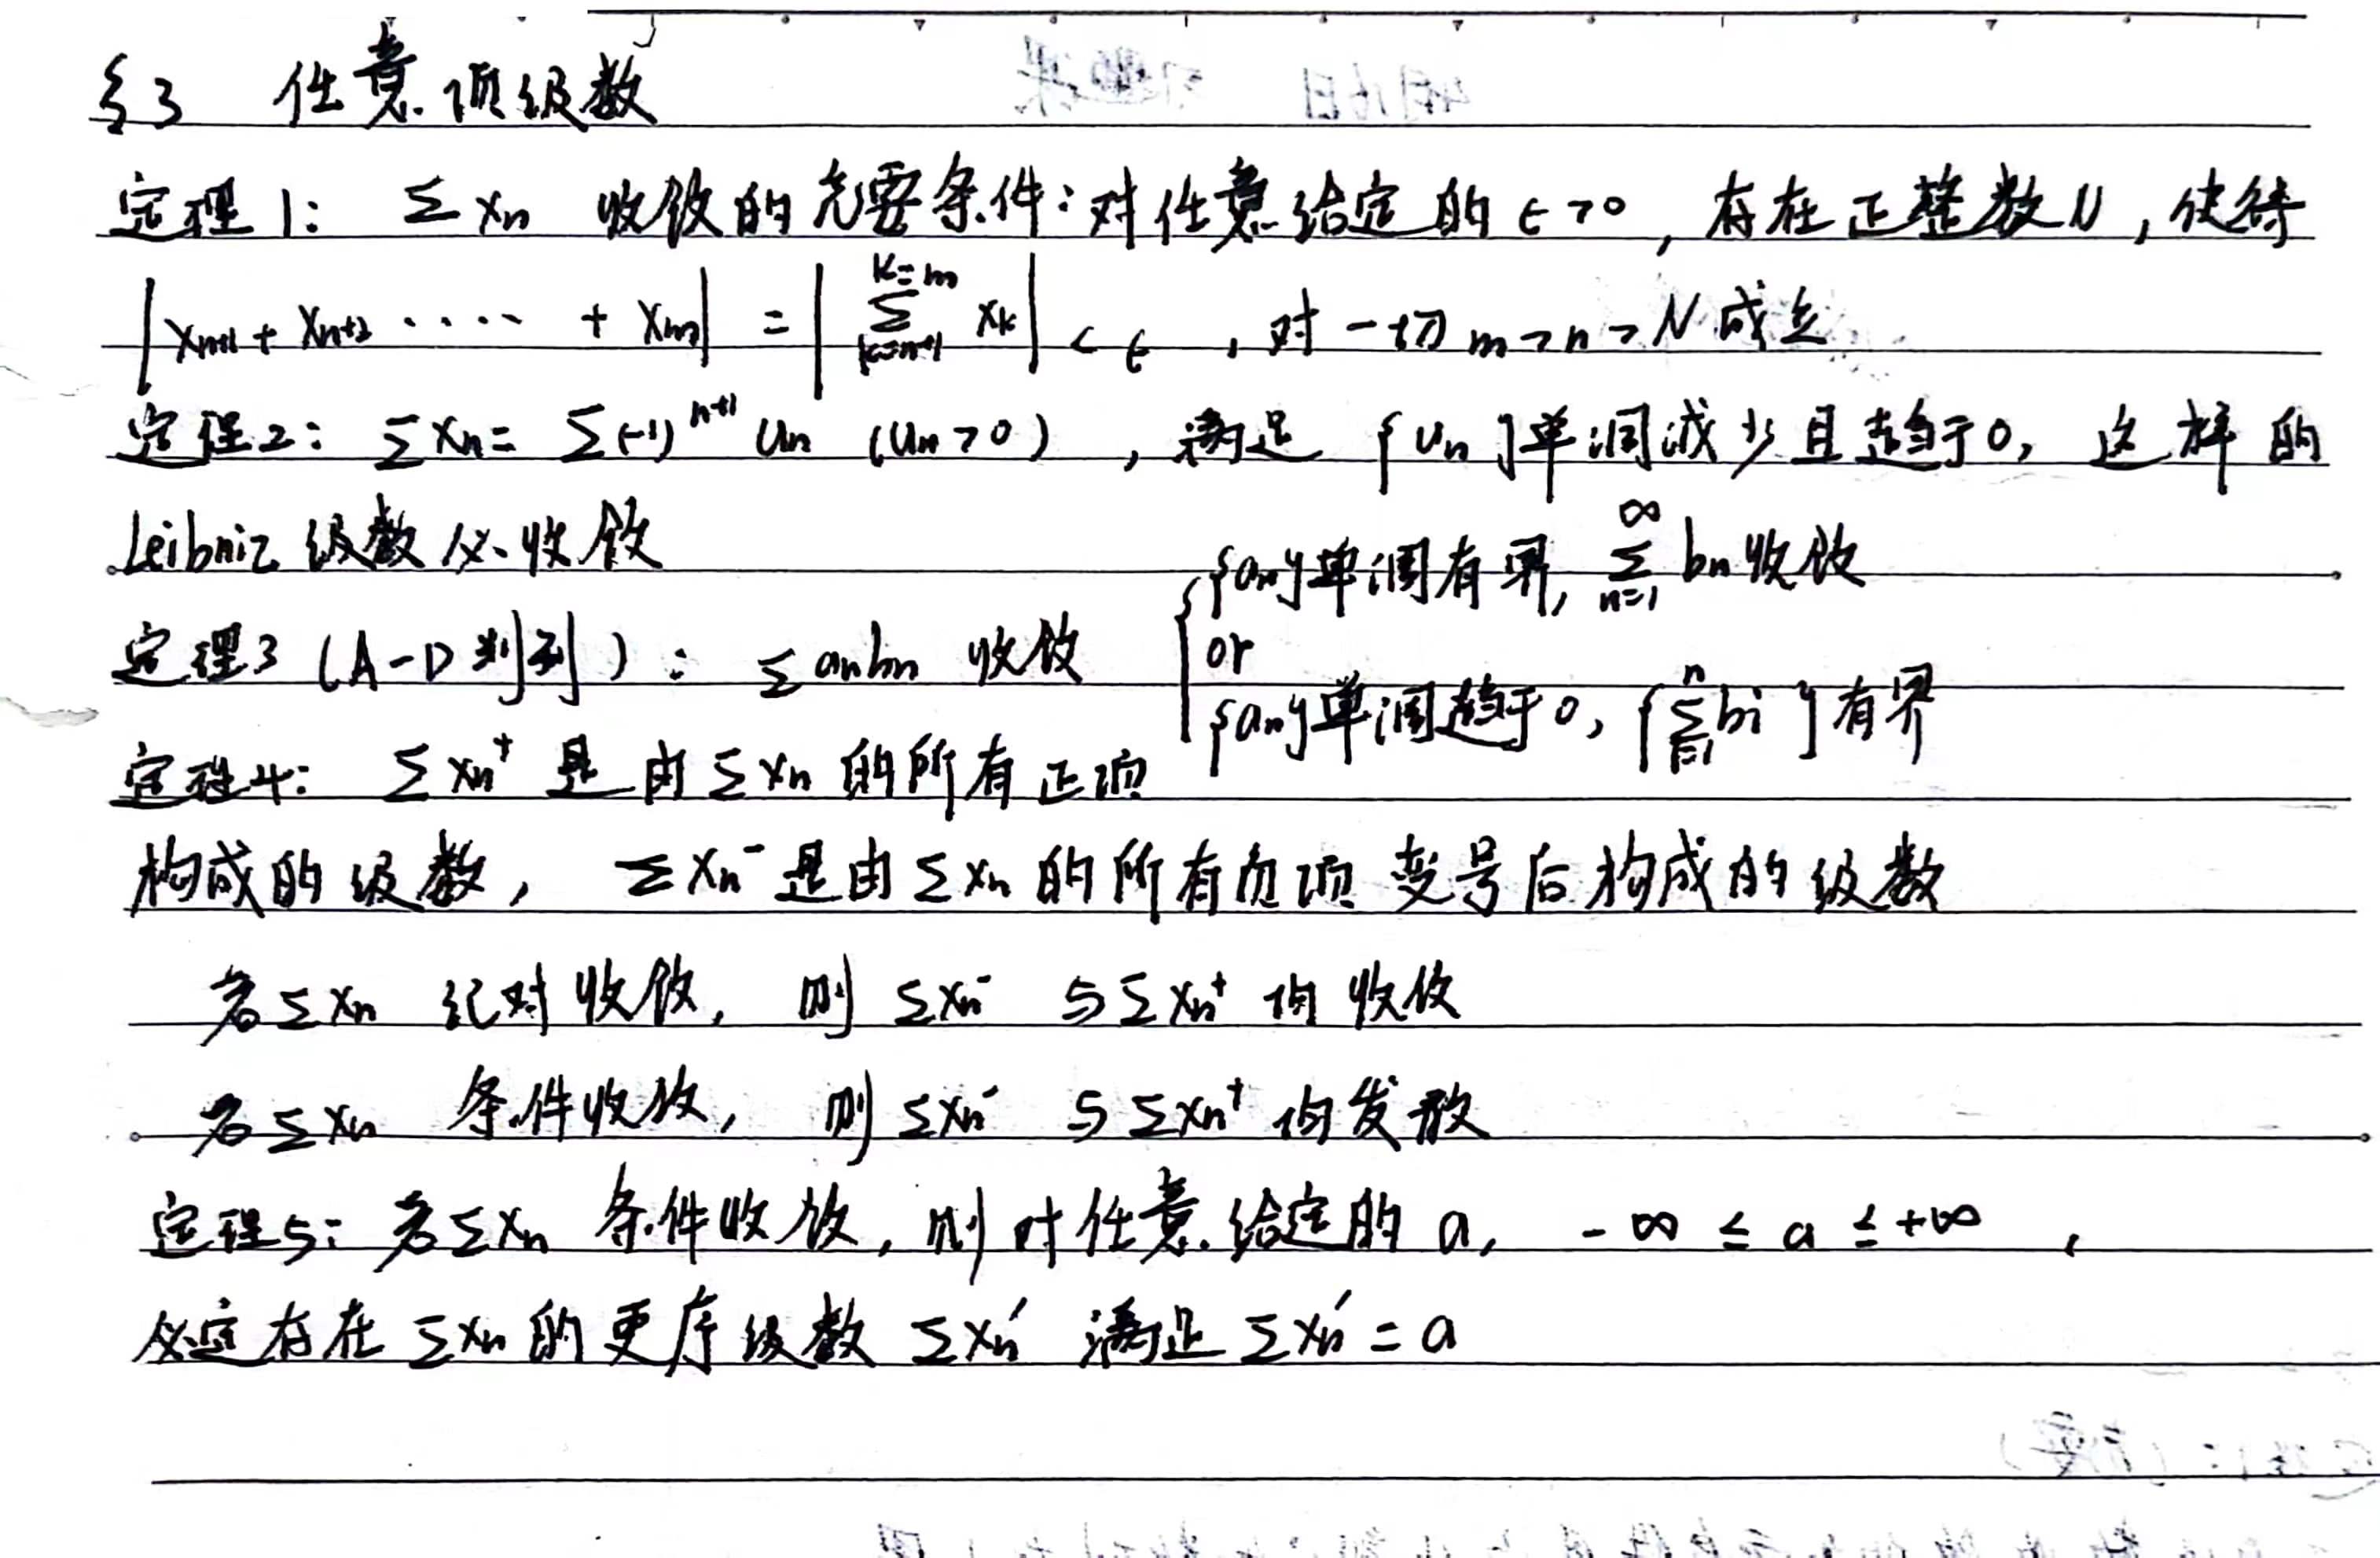 §3 任意项级数
定理1: Σxn 收敛的充要条件:对任意给定的 ε>0, 存在正整数N, 使得
|xn+1 + xn+2 ····· + xm| = |Σ_{k=n+1}^{k=m} xk| < ε , 对一切 m>n>N 成立
定理2: Σxn = Σ(-1)^{n+1} un (un>0) , 满足 {un}单调减少且趋于0, 这样的
Leibniz 级数必收敛
定理3 (A-D判别): Σanbn 收敛
{an}单调有界, Σ_{n=1}^{∞} bn收敛
or
{an}单调趋于0, {Σ_{i=1}^{n} bi}有界
定理4: Σxn⁺ 是由Σxn的所有正项
构成的级数, Σxn⁻是由Σxn的所有负项变号后构成的级数
若Σxn 绝对收敛, 则 Σxn⁻ 与Σxn⁺ 均收敛
若Σxn 条件收敛, 则 Σxn⁻ 与Σxn⁺ 均发散
定理5: 若Σxn 条件收敛, 则对任意给定的 a, -∞ ≤ a ≤ +∞ ,
必定存在 Σxn的更序级数 Σxn′ 满足 Σxn′ = a